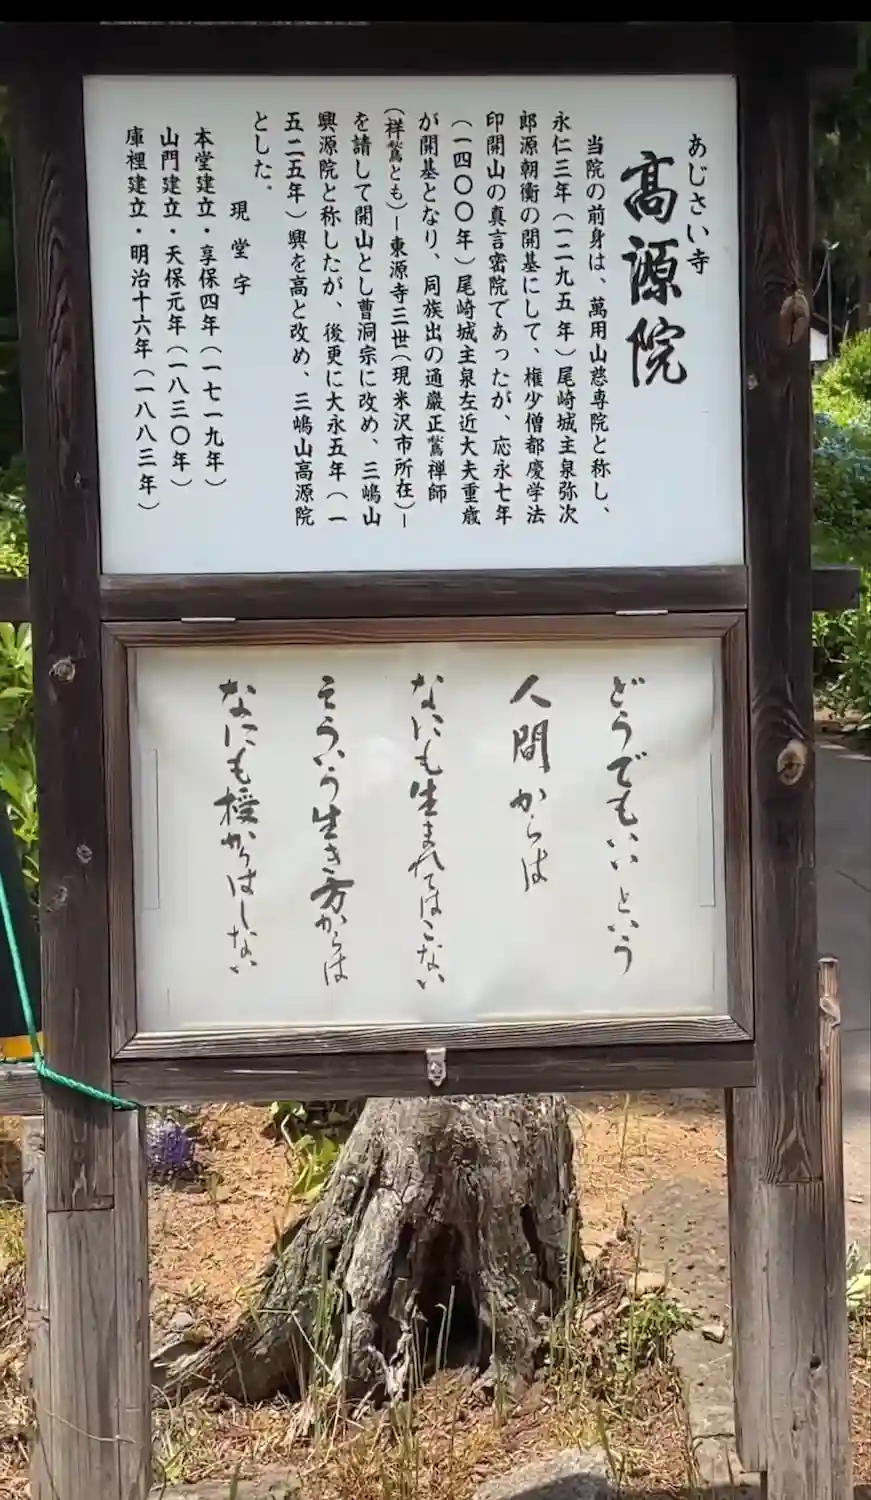 あじさい寺
高源院
当院の前身は、萬用山慈専院と称し、
永仁三年（一二九五年）尾崎城主泉弥次
郎源朝衡の開基にして、権少僧都慶学法
印開山の真言密院であったが、応永七年
（一四〇〇年）尾崎城主泉左近大夫重歳
が開基となり、同族出の通巖正鷲禅師
（祥鷲とも）―東源寺三世（現米沢市所在）―
を請して開山とし曹洞宗に改め、三嶋山
興源院と称したが、後更に大永五年（一
五二五年）興を高と改め、三嶋山高源院
とした．
現堂宇
本堂建立・享保四年（一七一九年）
山門建立・天保元年（一八三〇年）
庫裡建立・明治十六年（一八八三年）
どうでもいいという
人間からは
なにも生まれてはこない
そういう生き方からは
なにも授からはしない